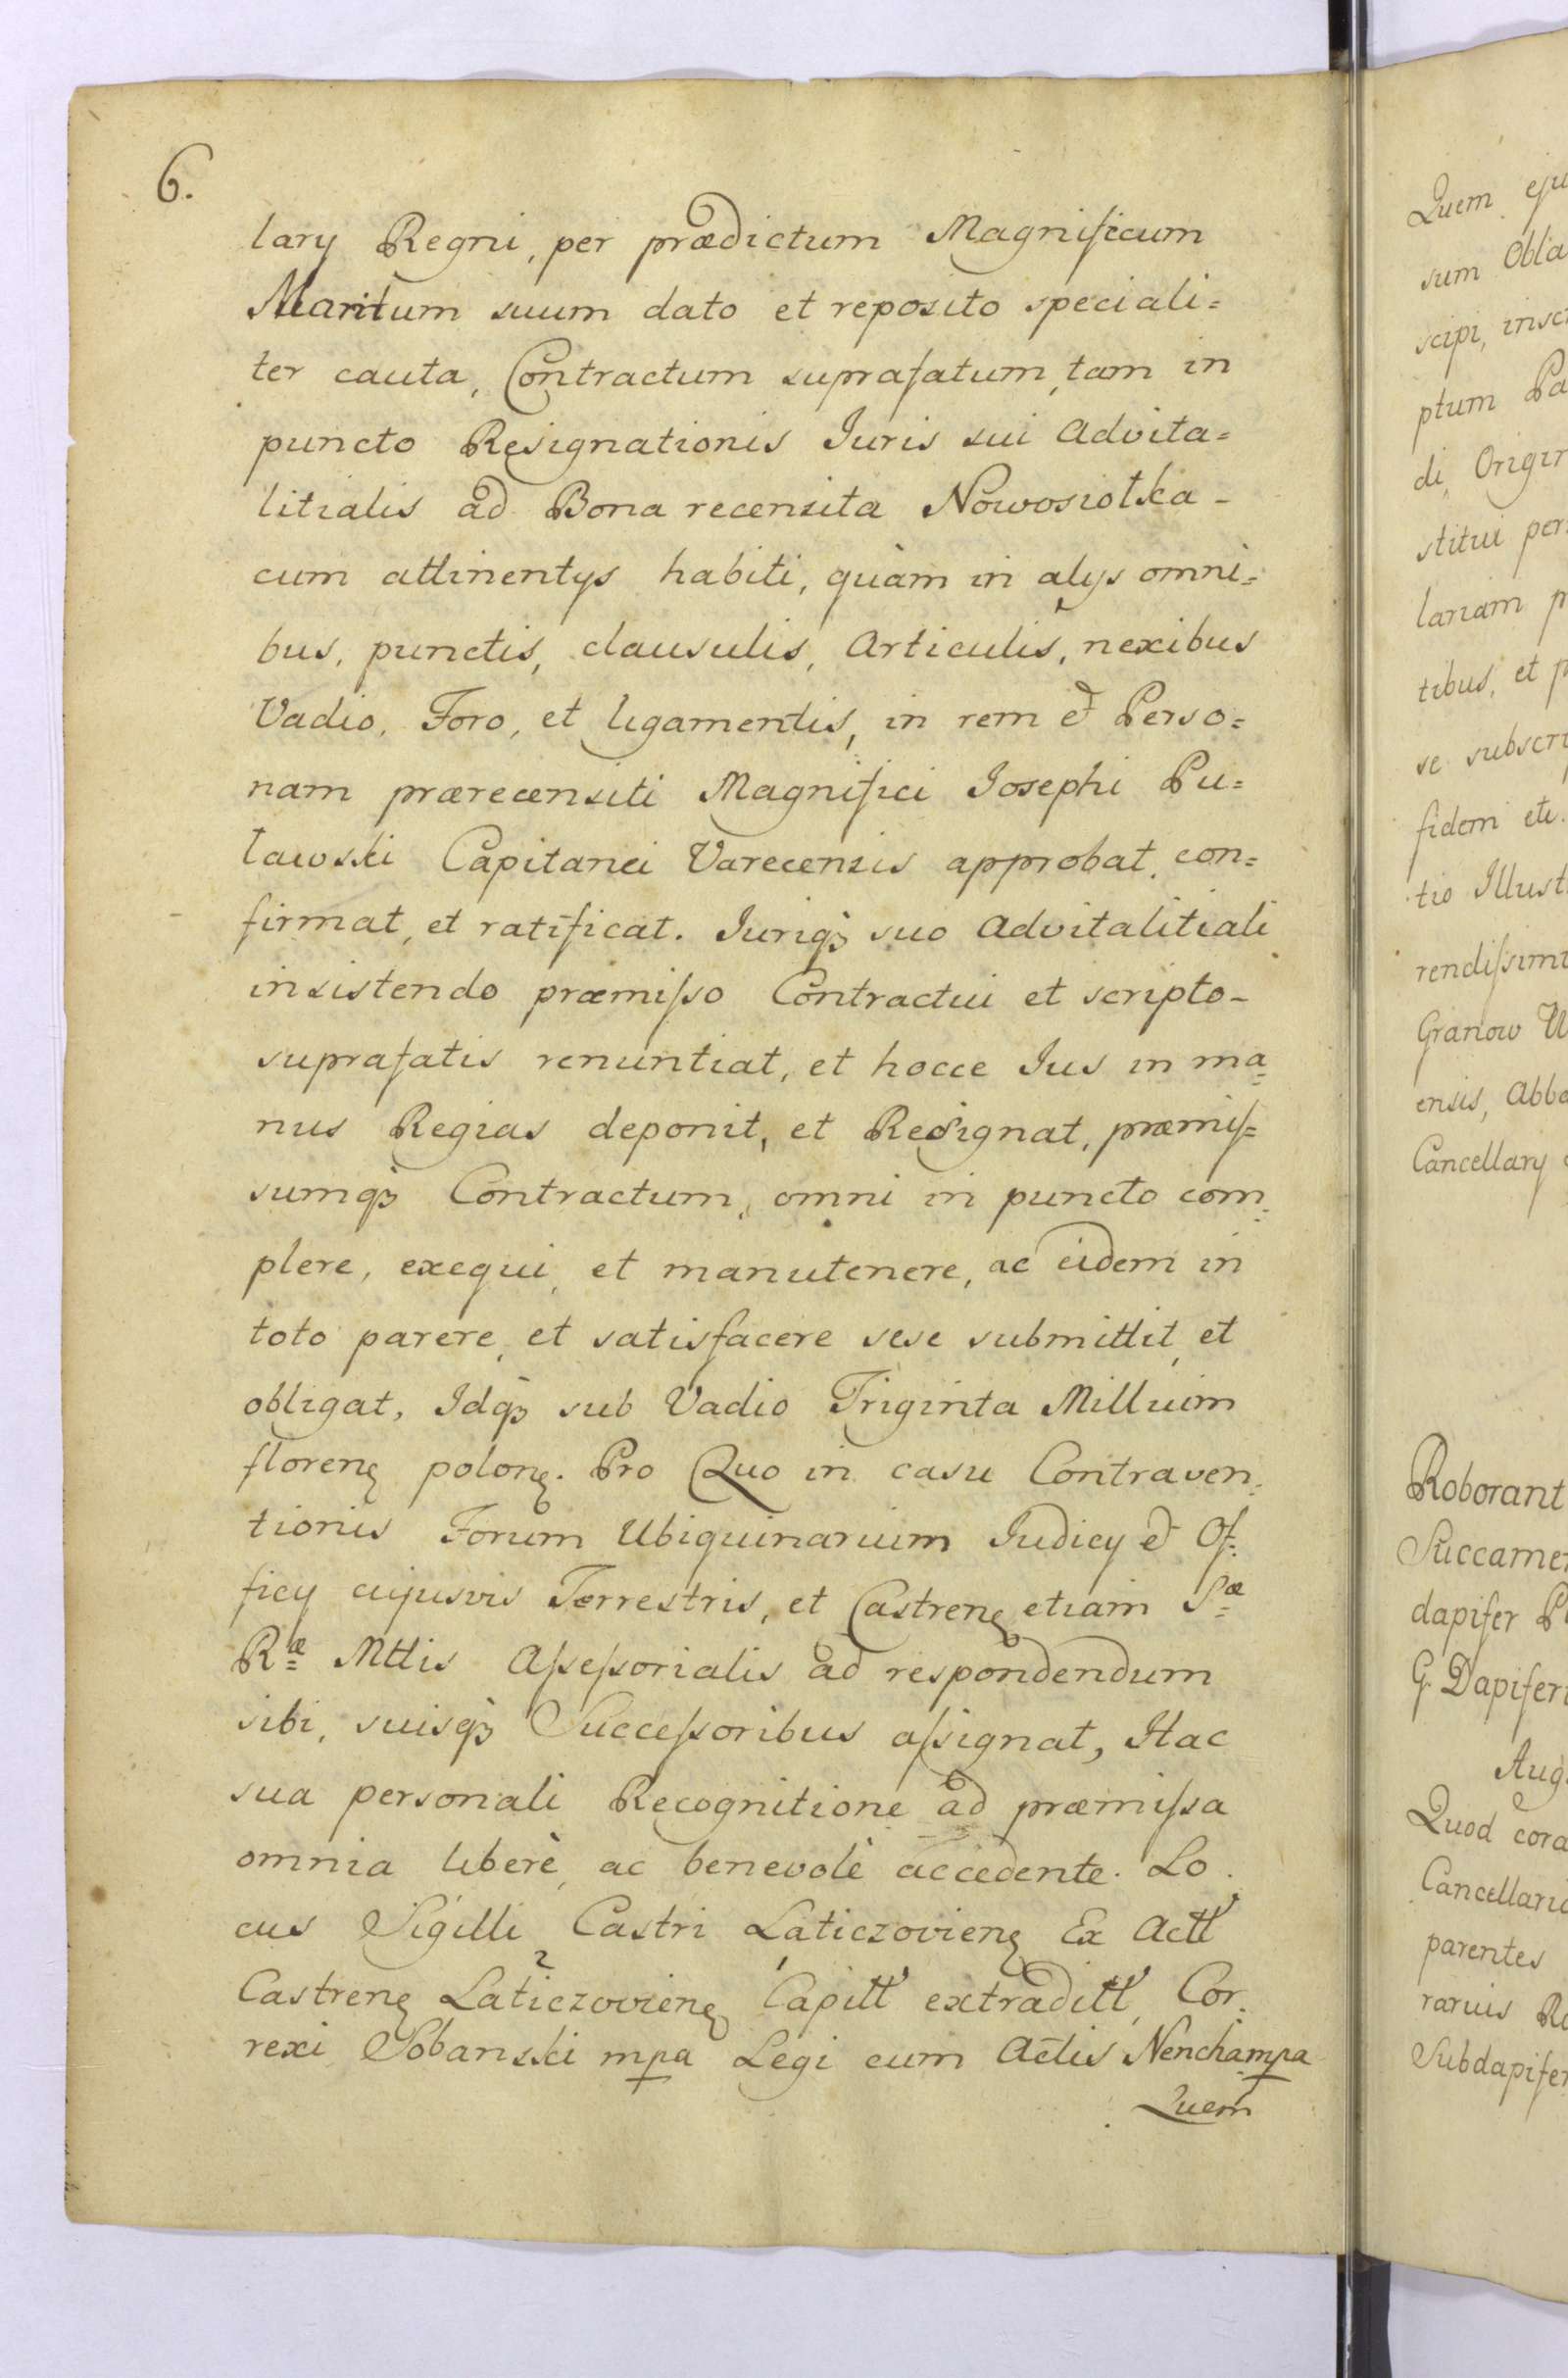 6.
lary Regni, per prædictum Magnificum
Maritum suum dato et reposito speciali=
ter cauta, Contractum suprafatum, tam in
puncto Resignationis Juris sui Advita=
litialis ad Bona recensita Nowosiołka -
cum attinentys habiti, quàm in alys omni=
bus, punctis, clausulis, Articulis, nexibus
Vadio, Foro, et ligamentis, in rem et Perso=
nam prærecensiti Magnifici Josephi Pu=
ławski Capitanei Varecensis approbat, con=
firmat, et ratificat. Juriqꝫ suo Advitalitiali
insistendo præmiſso Contractui et scripto -
suprafatis renuntiat, et hocce Jus in ma=
nus Regias deponit, et Resignat, præmiſ=
sumqꝫ Contractum, omni in puncto com=
plere, exequi, et manutenere, ac eidem in
toto parere, et satisfacere sese submittit, et
obligat, Idqꝫ sub Vadio Triginta Millium
floren polon. Pro Quo in casu Contraven=
tionis Forum Ubiquinarium Judicy et Of=
ficy cujusvis Terrestris, et Castren etiam Sæ
Ræ Mttis Aſseſsorialis ad respondendum
sibi, suisqꝫ Succeſsoribus aſsignat, Hac
sua personali Recognitione ad præmiſsa
omnia liberè, ac benevolè accedente. Lo=
cus Sigilli Castri Laticzovien Ex Actt
Castren Laticzovien Capitt extraditt, Cor=
rexi Sobanski mpa Legi cum Actis Nencha mpa
Quem
Quem eju
sum Obla
scipi, inscr
ptum Pa
di, Origin
stitui per
lariam p
tibus, et p
se subscri
fidem etc.
tio Illust
rendiſsimi
Granow
ensis, Abba
Cancellary
Roborant
Succamer
dapifer P
G. Dapiferi
Aug
Quod cora
Cancellaria
parentes
rarius Re
Subdapifer